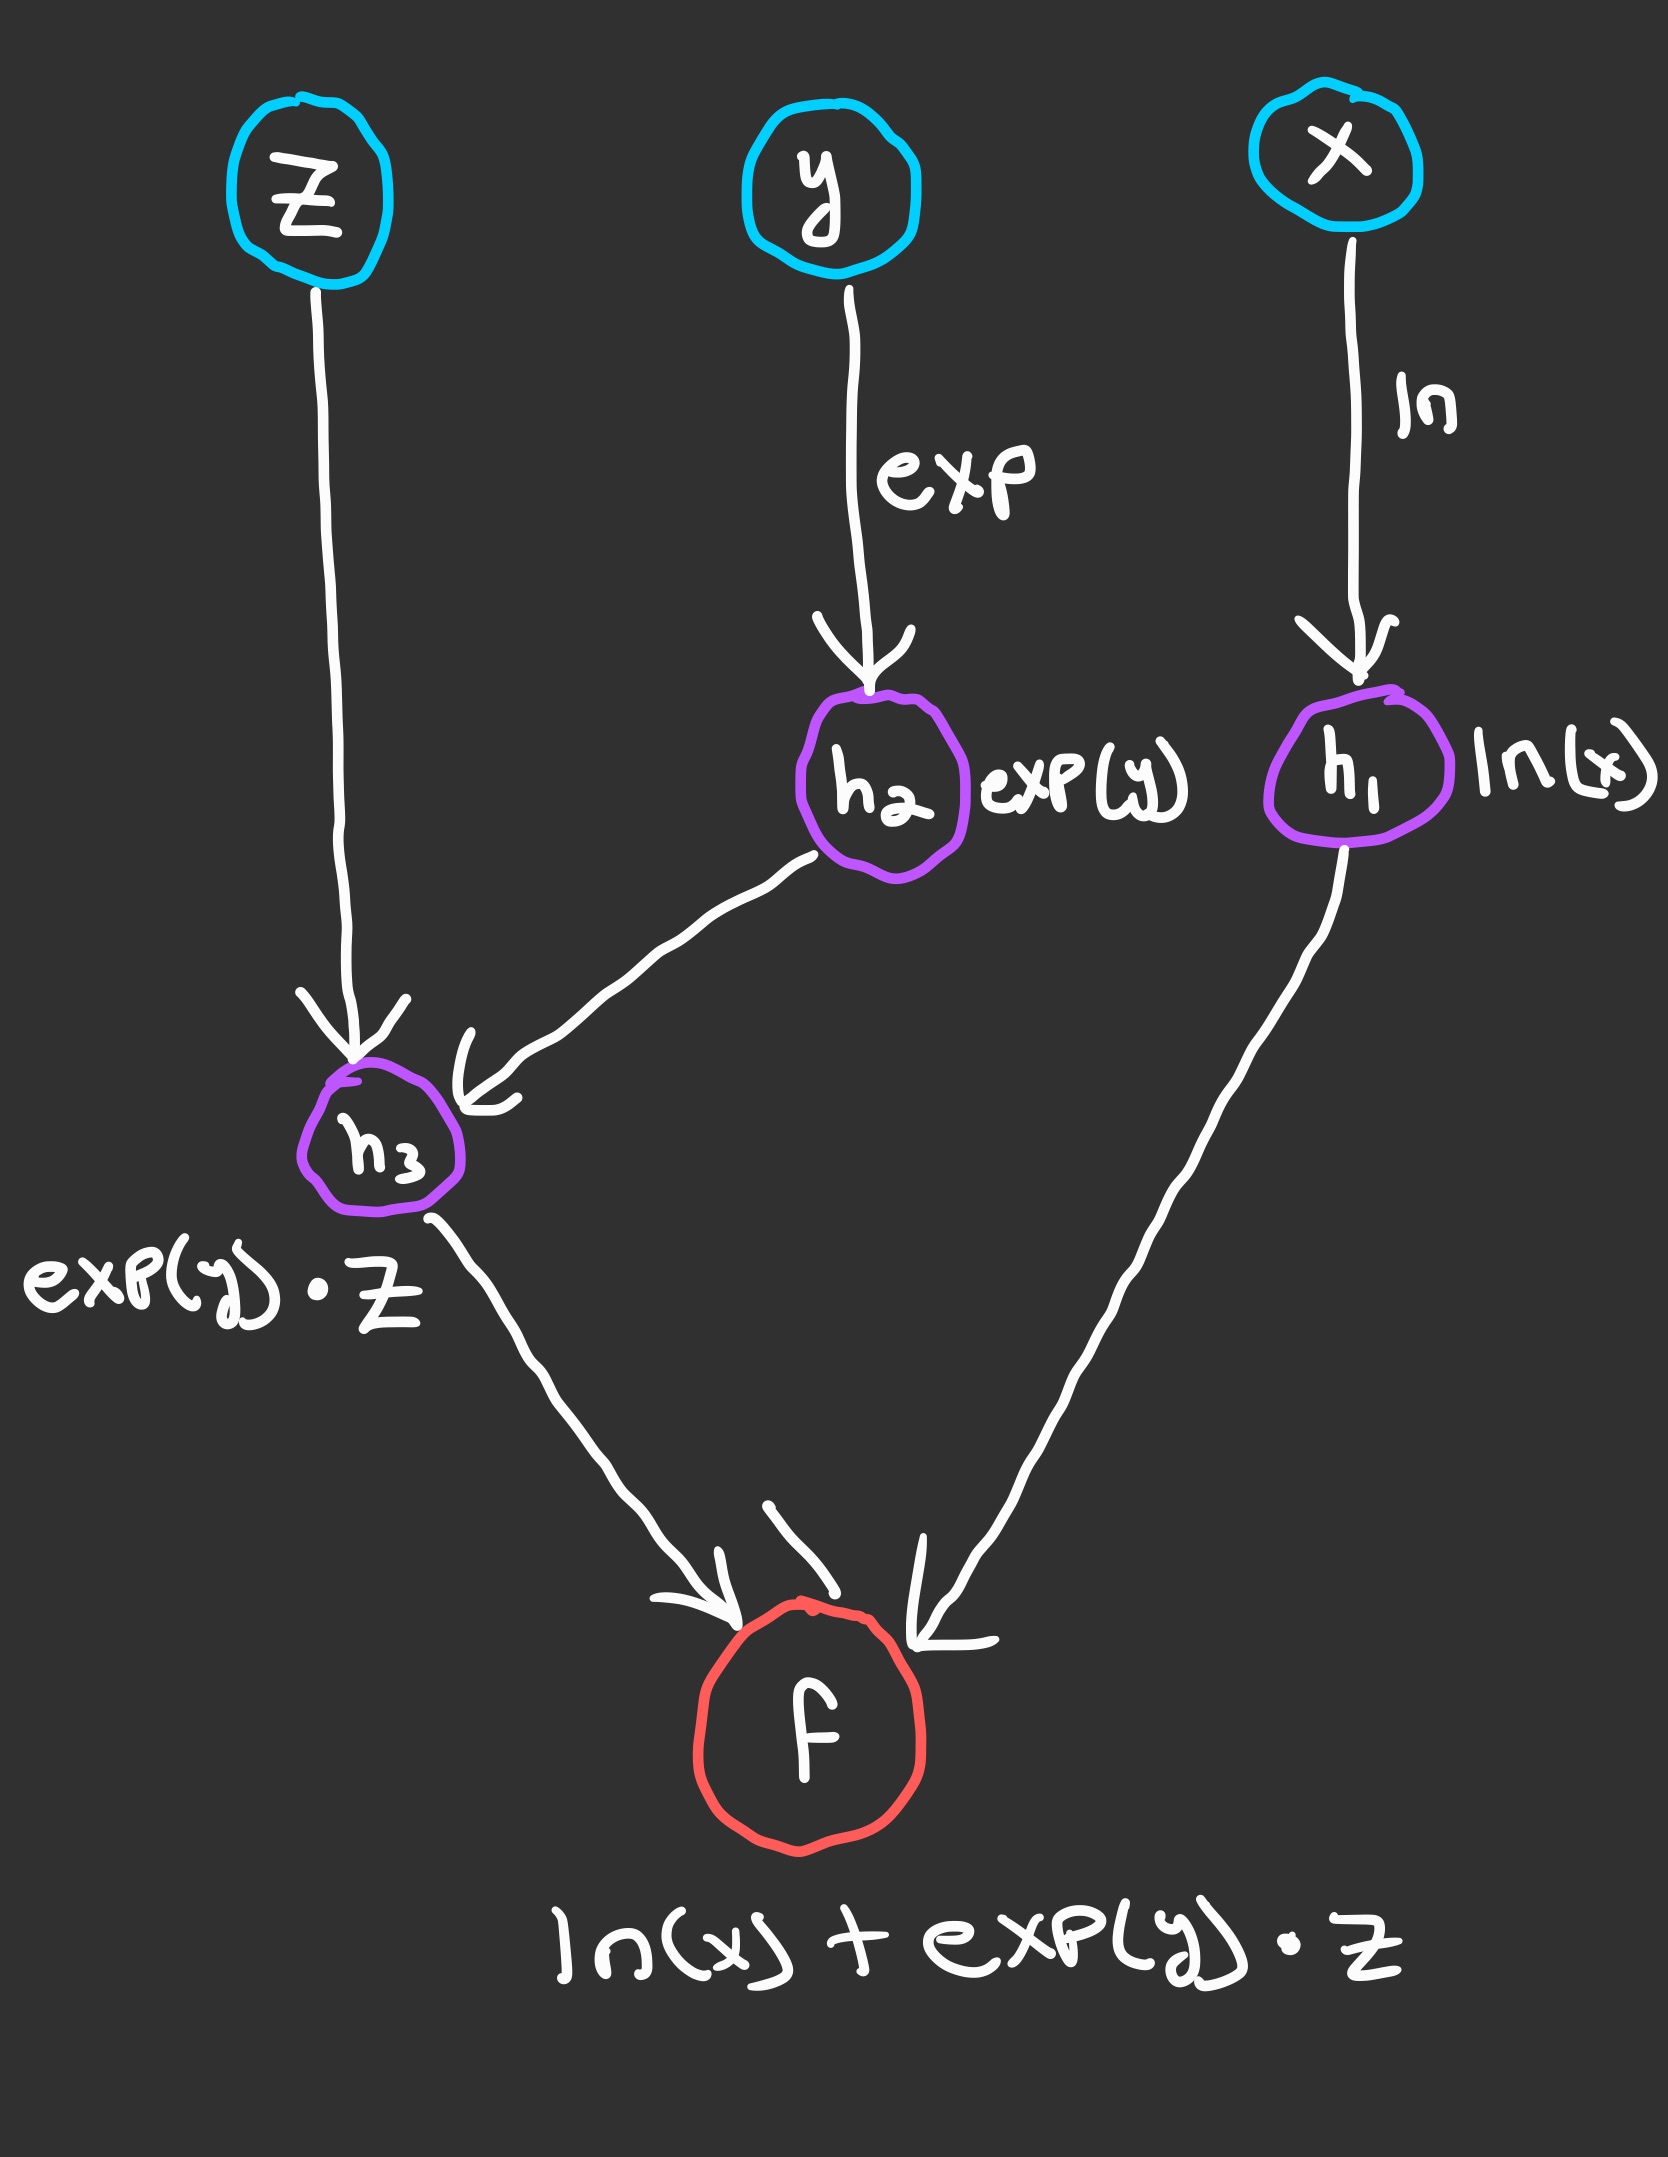 z y x
exp ln
h₂ exp(y) h₁ ln(x)
h₃
exp(y) · z
f
ln(x) + exp(y) · z